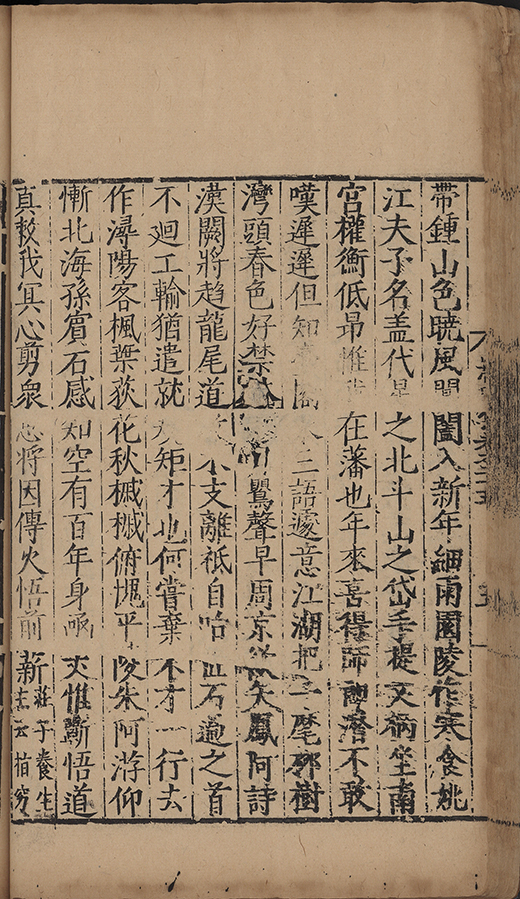 帶鍾山色曉風閶闔入新年細雨園陵作寒食姚
江夫子名盖代星之北斗山之岱手提文柄坐南
宮權衡低昂惟我在藩也年來喜得師潛不敢
嘆遲遲但知三語遽意江湖把一麾邪樹
灣頭春色好禁鸎聲早周京矢鳳阿詩
漢闕將趨龍尾道不支離祇自咍石遍之首
不廻工輪猶遣就矩才也何嘗棄不才一行去
作潯陽客楓葉荻花秋槭槭俯塊平陵朱阿游仰
慚北海孫賓石感知空有百年身惟斲悟道
真救我冥心剪衆將因傳火悟前薪莊子養生
主云指窮